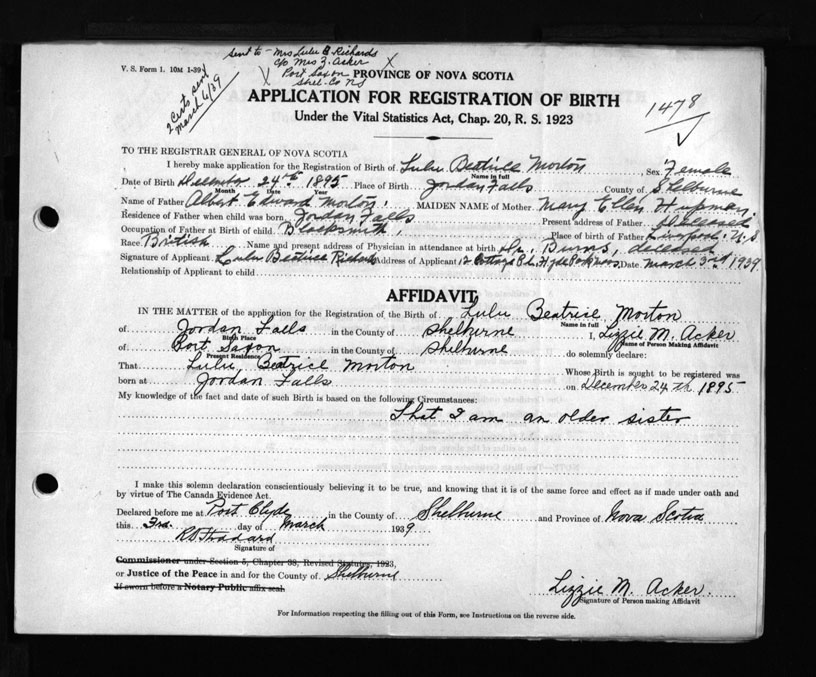 V. S. Form 1. 10M 1-39
sent to - Mrs Lulu B Richards
c/o Mrs Z. Acker
Port Saxon
Shel. Co NS
2 Certs sent
March 6/39
1478
PROVINCE OF NOVA SCOTIA
APPLICATION FOR REGISTRATION OF BIRTH
Under the Vital Statistics Act, Chap. 20, R. S. 1923
TO THE REGISTRAR GENERAL OF NOVA SCOTIA
I hereby make application for the Registration of Birth of Lulu Beatrice Morton, Sex Female
Name in full
Date of Birth December 24th 1895 Place of Birth Jordan Falls County of Shelburne
Month Date Year
Name of Father Albert Edward Morton. MAIDEN NAME of Mother. Mary Ellen Hupman.
Residence of Father when child was born Jordan Falls Present address of Father deceased
Occupation of Father at Birth of child. Blacksmith, Place of birth of Father Liverpool. N. S
Race British Name and present address of Physician in attendance at birth Dr. Burns, deceased
Signature of Applicant Lulu Beatrice Richards Address of Applicant 12 Cottage Pl. Hyde Park Mass. Date March 3rd 1939
Relationship of Applicant to child
AFFIDAVIT
IN THE MATTER of the application for the Registration of the Birth of Lulu Beatrice Morton
Name in full
of Jordan Falls in the County of Shelburne I, Lizzie M. Acker
Birth Place Name of Person Making Affidavit
of Port Saxon in the County of Shelburne do solemnly declare:
Present Residence
That Lulu Beatrice Morton Whose Birth is sought to be registered was
born at Jordan Falls on December 24th 1895
My knowledge of the fact and date of such Birth is based on the following Circumstances:
That I am an older sister
I make this solemn declaration conscientiously believing it to be true, and knowing that it is of the same force and effect as if made under oath and
by virtue of The Canada Evidence Act.
Declared before me at Port Clyde in the County of Shelburne and Province of Nova Scotia
this 3rd. day of March 1939
Signature of
Commissioner under Section 5, Chapter 38, Revised Statutes, 1923,
or Justice of the Peace in and for the County of Shelburne
If sworn before a Notary Public affix seal.
Lizzie M. Acker.
Signature of Person making Affidavit
For Information respecting the filling out of this Form, see Instructions on the reverse side.